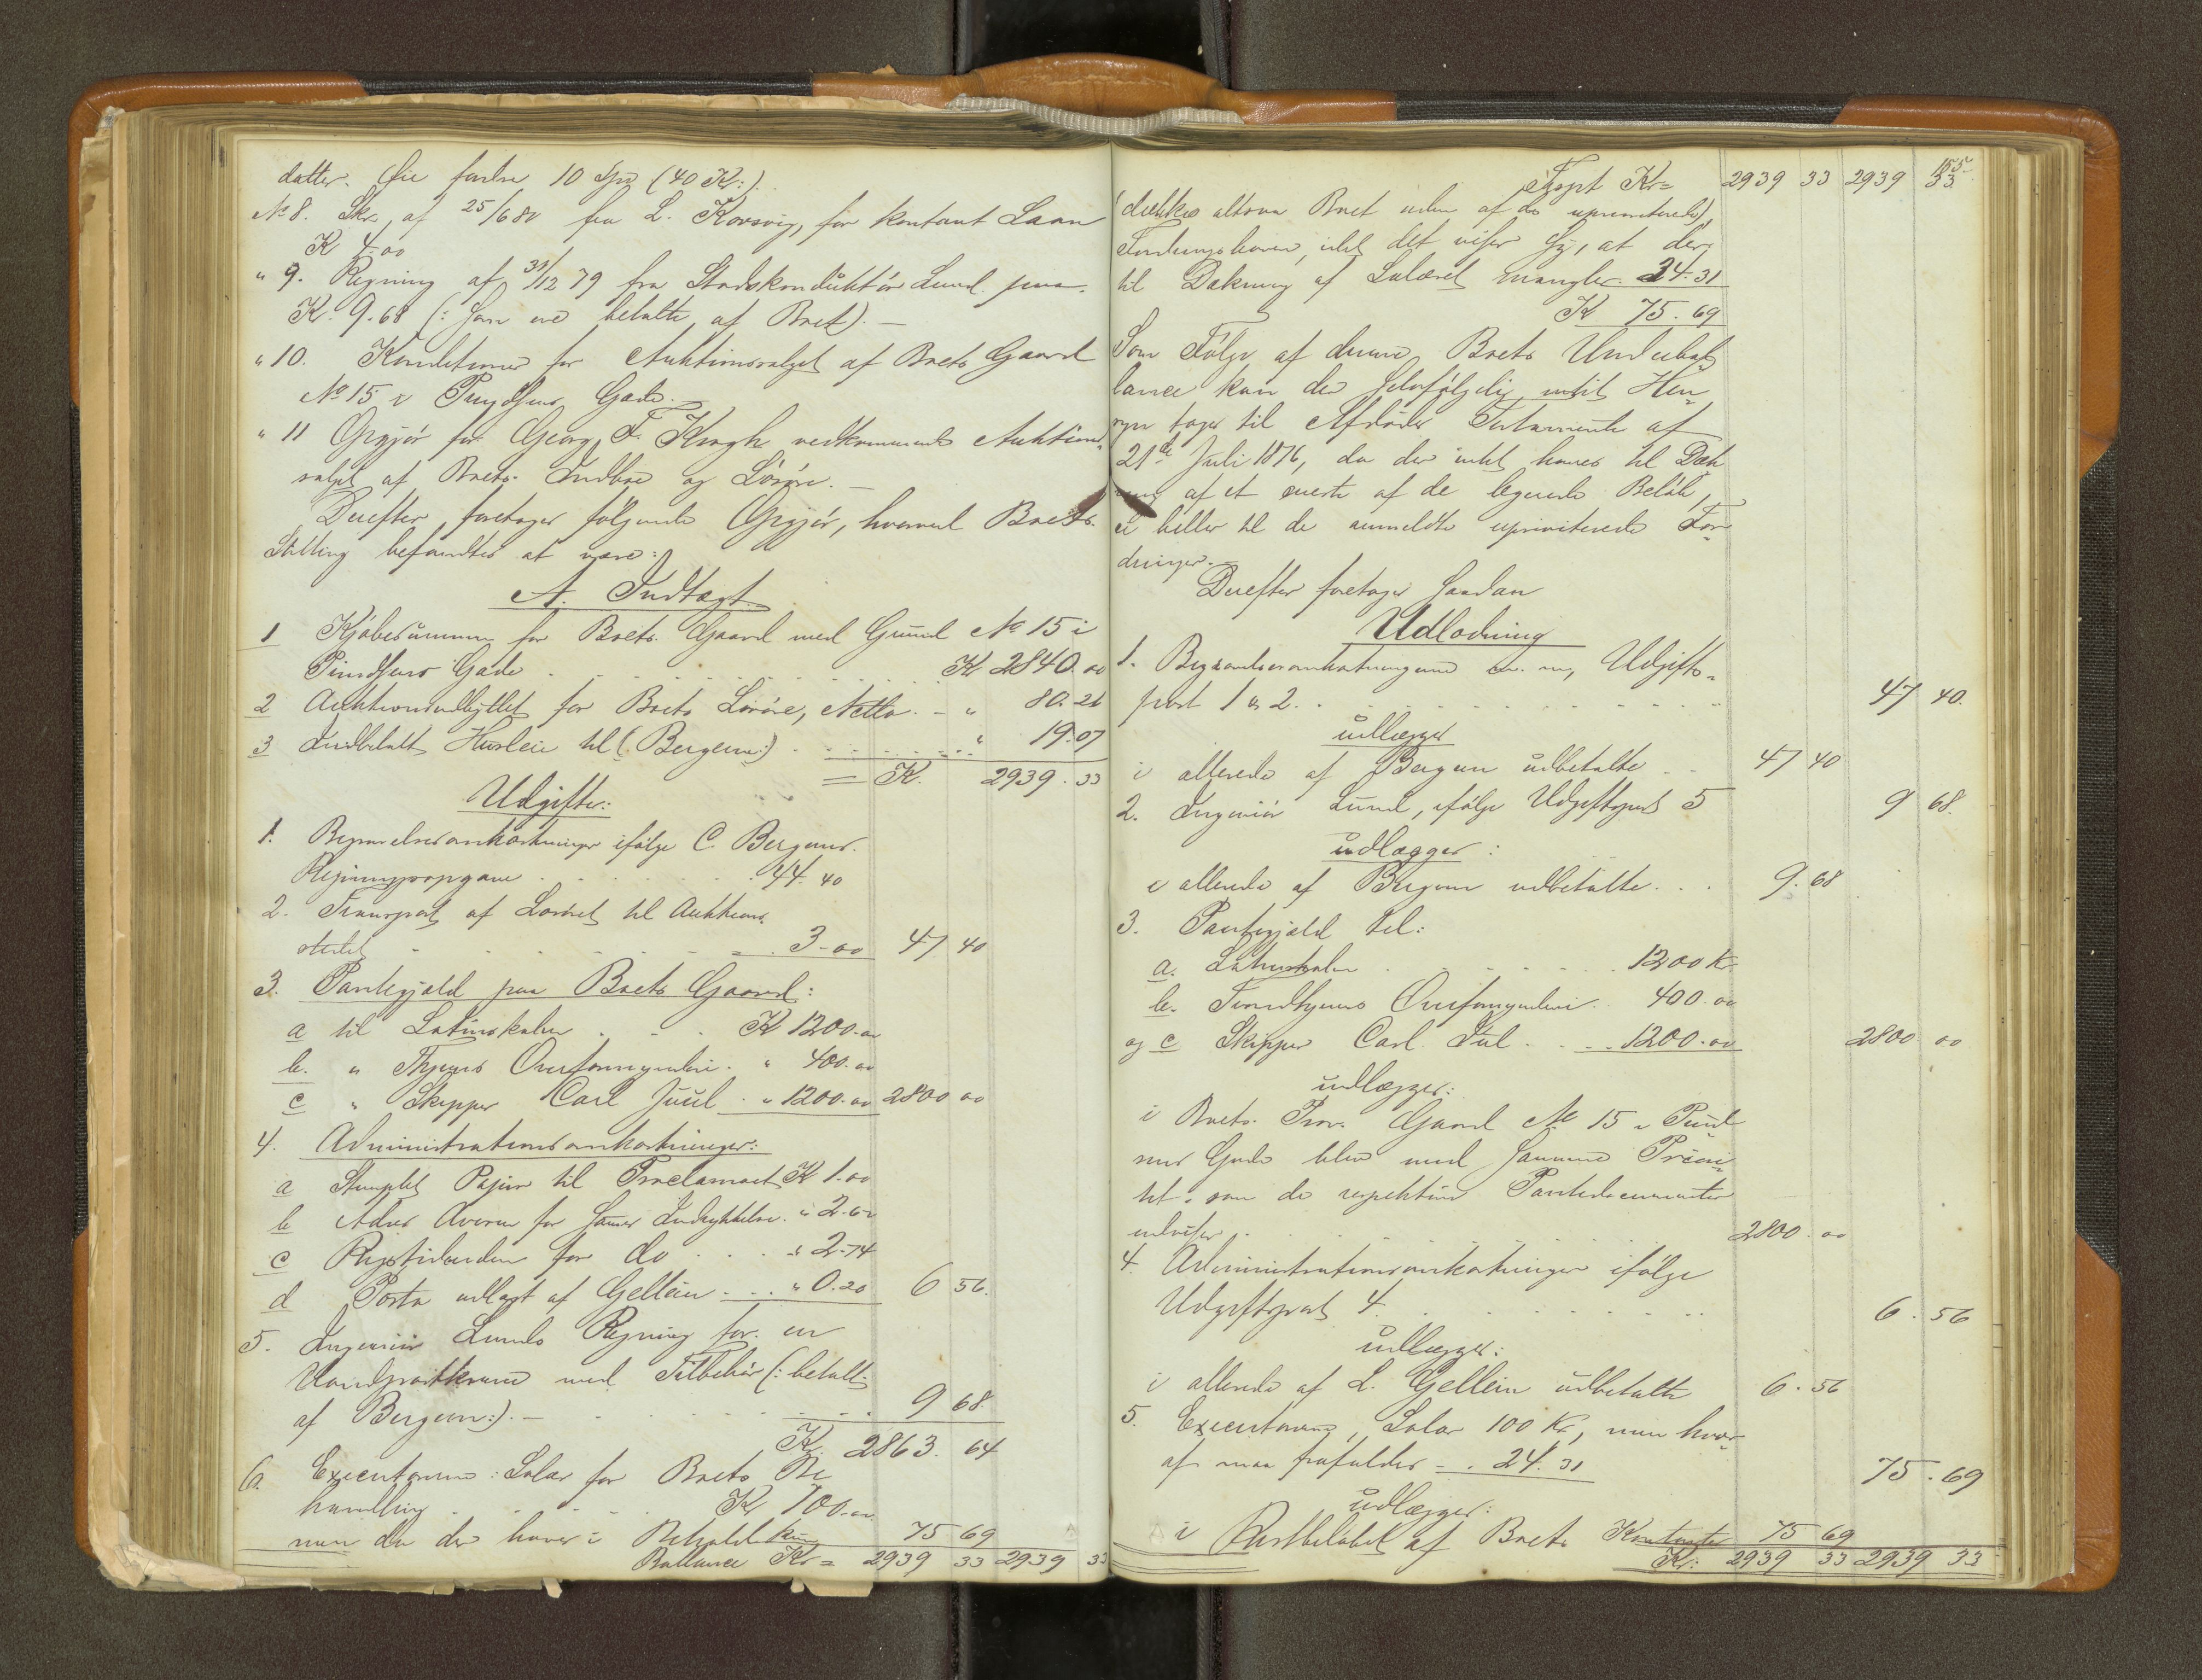 datter. Øie fordre 10 Spd (40 Kr:).
No 8. Skr. af 25/6 80 fra L. Korsvig, for kontant Laan
K 4.00
" 9. Regning af 31/12 79 fra Stadskonduktør Lund paa
K. 9.68 (: som er betalte af Boet). —
" 10. Konditioner for Auktionssalget af Boets Gaard
No 15 i Gade.
" 11 Opgjør fra Georg F. Krogh vedkommende Auktions-
salget af Boets Indbo og Løsøre. —
Derefter foretoges følgende Opgjør, hvorved Boets
Stilling befandtes at være:
A. Indtægt
1 Kjøbesummen for Boets Gaard med Grund No 15 i
Gade . . . Kr 2840.00
2 Auktionsudbyttet for Boets Løsøre, Netto. — " 80.26
3 Indbetalt Husleie til (: Bergem:) . . . " 19.07
= K. 2939.33
Udgifter:
1. Begravelsesomkostninger ifølge C. Bergems
Regningsopgave . . . 44.40
2. Transport af Løsøret til Auktions-
stedet . . . 3-00 47 40
3. Pantegjæld paa Boets Gaard:
a til Latinskolen . . . K 1200.00
b. " Thjems Overformynderi. " 400.00
c " Skipper Carl Juul . " 1200.00 2800 00
4. Administrationsomkostninger:
a Stemplet Papir til Proclamaet K 1.00
b Adresseavisen for sammes Indrykkelse. " 2.62
c Rigstidenden for do . . . " 2.74
d Porto udlagt af Gellein . . . " 0.20 6 56.
5. Ingeniør Lunds Regning for en
Vandpostkrane med Tilbehør (: betalt
af Bergem:). — . . . 9 68
Kr. 2863. 64
6. Executorerne: Salær for Boets Be
handling . . . K 100.00
men da der haves i Behold kun 75 69
Ballance Kr = 2939 33 2939 33
155
Tspt Kr = 2939 33 2939 33
dækkes altsaa Boet uden af do uprioriterede
Fordringshavere, idet det viser sig, at der
til Dækning af Salæret mangler 24.31
K 75.69
Som Følge af denne Boets Underbal
lance kan der selvfølgelig intet Hen
syn tages til Afdødes Testamente af
21de Juli 1876, da der intet haves til Dæk
ning af et eneste af de legerede Beløb,
ei heller til de anmeldte uprioriterede For
dringer. —
Derefter foretoges saadan
Udlodning
1. Begravelsesomkostningerne m. m., Udgifts-
post 1 & 2. . . . 47 40.
udlægges
i allerede af Bergem udbetalte . . 47 40
2. Ingeniør Lund, ifølge Udgiftspost 5 9 68.
udlægges:
i allerede af Bergem udbetalte . . . 9.68
3. Pantegjæld til:
a. Latinskolen . . . 1200 Kr.
b. Trondhjems Overformynderi . . 400.00
og c Skipper Carl Jul . . . 1200.00 2800 00
udlægges:
i Boets Prov. Gaard No 15 i
Gade blev med samme Priori
tet, som de respektive Pantedocumenter
udviser . . . 2800.00
4. Administrationsomkostninger ifølge
Udgiftspost 4. . . . 6.56
udlægges:
i allerede af L. Gellein udbetalte 6.56
5. Executorerne, Salær 100 Kr, men hvor
af maa frafaldes = . 24.31 75.69
udlægges:
i Restbeløbet af Boets Kontanter 75 69
Kr: 2939 33 2939 33